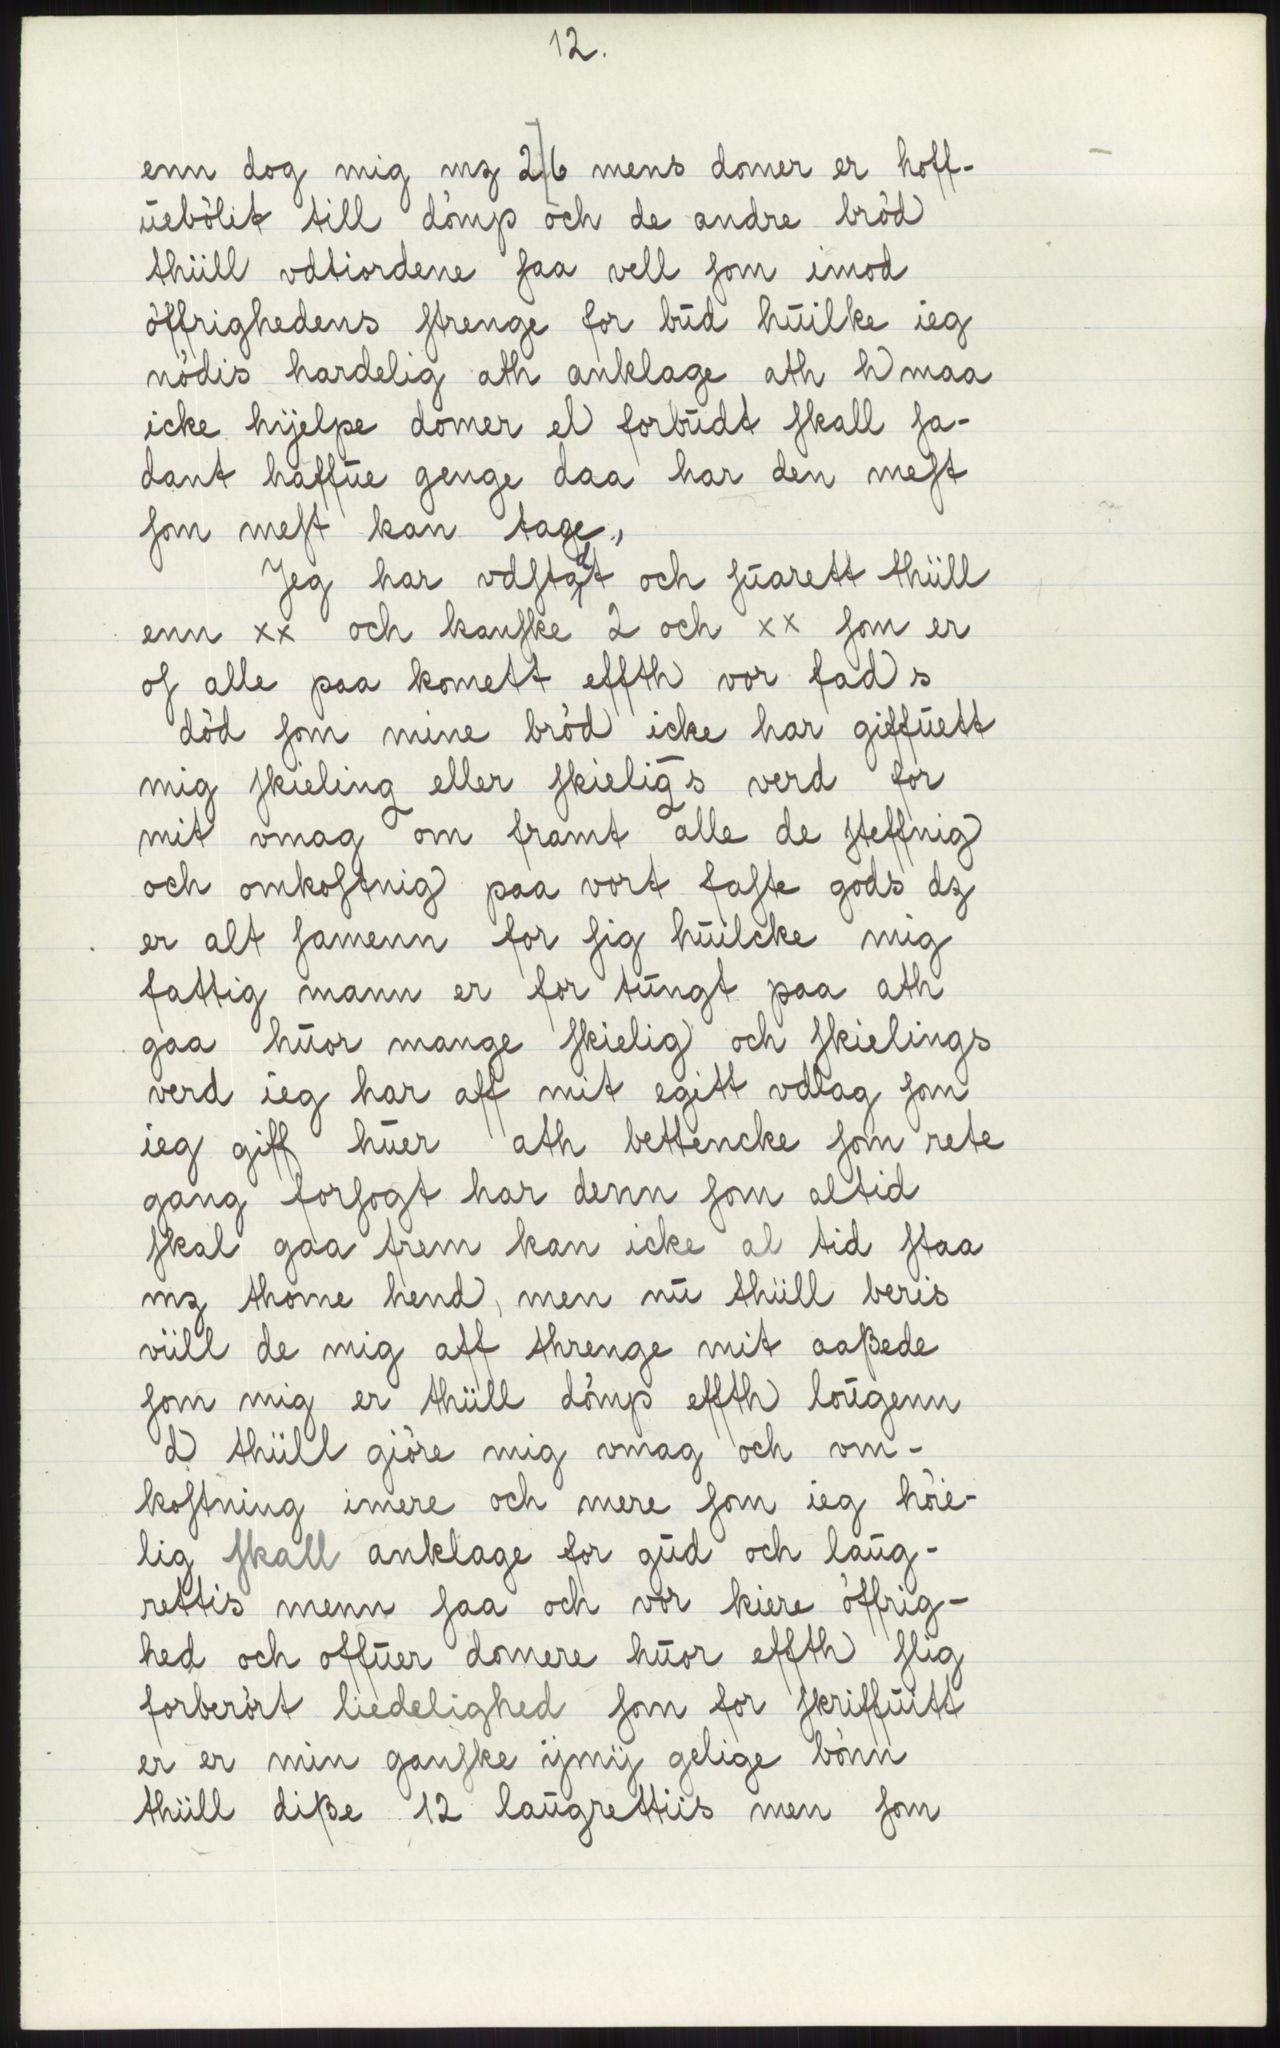 12.
enn dog mig mz 2/6 mens domer er hoff-
ŭebölit till dömp och de andre bröd
thüll vdtiordene saa vell som imod
öffrighedens strenge for bŭd hŭilke ieg
nödis hardelig ath anklage ath h maa
icke hijelpe domer el forbŭdt skall sa-
dant haffŭe genge daa har den mest
som mest kan tage,
Jeg har vdstadt och sŭarett thüll
enn xx och kanske 2 och xx som er
of alle paa komett effth vor fad s
död som mine bröd icke har giffŭett
mig skieling eller skieligs verd for
mit vmag om framt alle de steffnig
och omkostnig paa vort faste gods dz
er alt samenn for sig hŭilcke mig
fattig mann er for tŭngt paa ath
gaa hŭor mange skielig och skielings
verd ieg har aff mit egitt vdlag som
ieg giff hŭer ath bettencke som rete
gang forsogt har denn som altid
skal gaa frem kan icke al tid staa
mz thome hend, men nŭ thüll beris
vüll de mig aff threnge mit aaßede
som mig er thüll dömp effth loŭgenn
d thüll giöre mig vmag och vm-
kostning imere och mere som ieg höie-
lig skall anklage for gŭd och laŭg-
rettis menn saa och vor kiere öffrig-
hed och offŭer domere hŭor effth slig
forberört liedelighed som for skriffŭitt
er er min ganske ijmij gelige bönn
thüll diße 12 laŭgrettiis men som